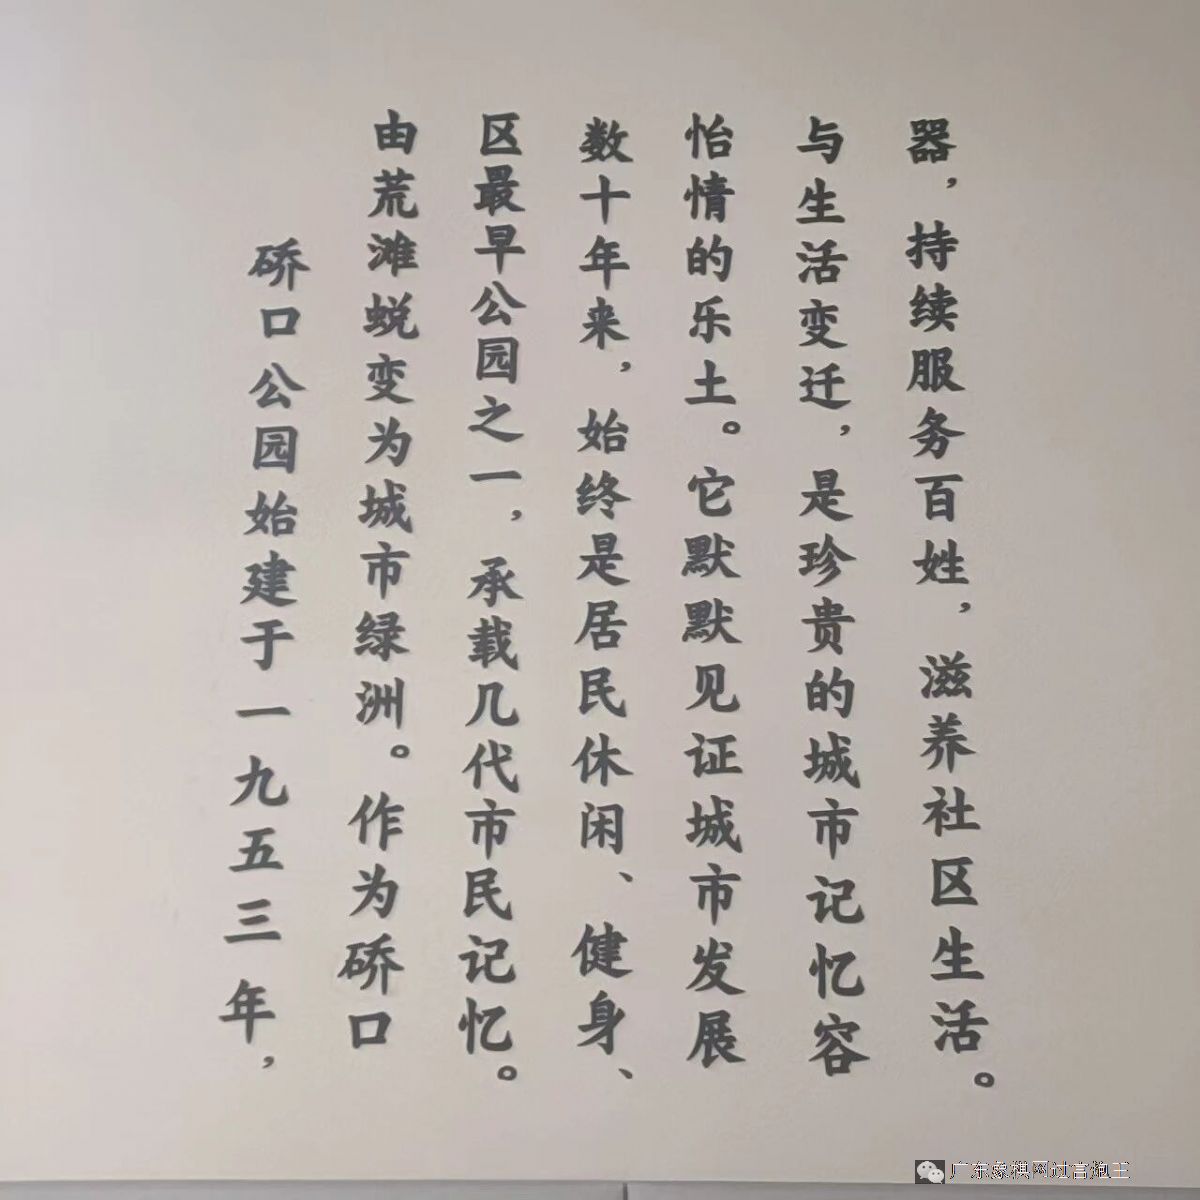 硚口公园始建于一九五三年，
由荒滩蜕变为城市绿洲。作为硚口
区最早公园之一，承载几代市民记忆。
数十年来，始终是居民休闲、健身、
怡情的乐土。它默默见证城市发展
与生活变迁，是珍贵的城市记忆容
器，持续服务百姓，滋养社区生活。
广东象棋网过宫炮王